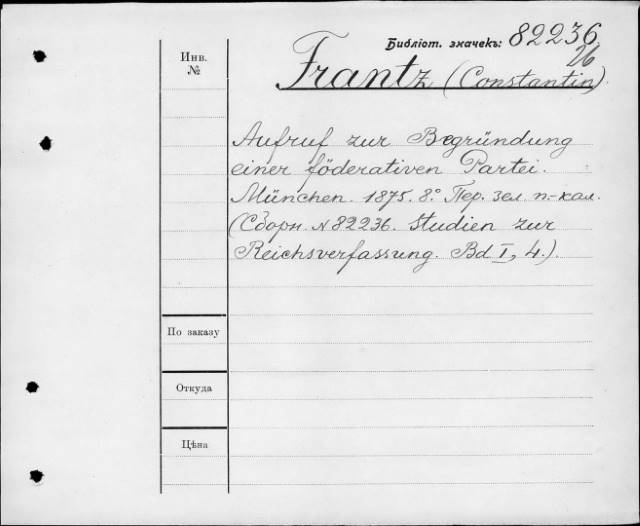 Библіот. значекъ: 82236
26
Инв.
№
Frantz (Constantin)
Aufruf zur Begründung
einer föderativen Partei.
München. 1875. 8.° Пер. зел. п.-кал.
(Сборн. № 82236. Studien zur
Reichsverfassung. Bd I, 4.)
По заказу
Откуда
Цѣна